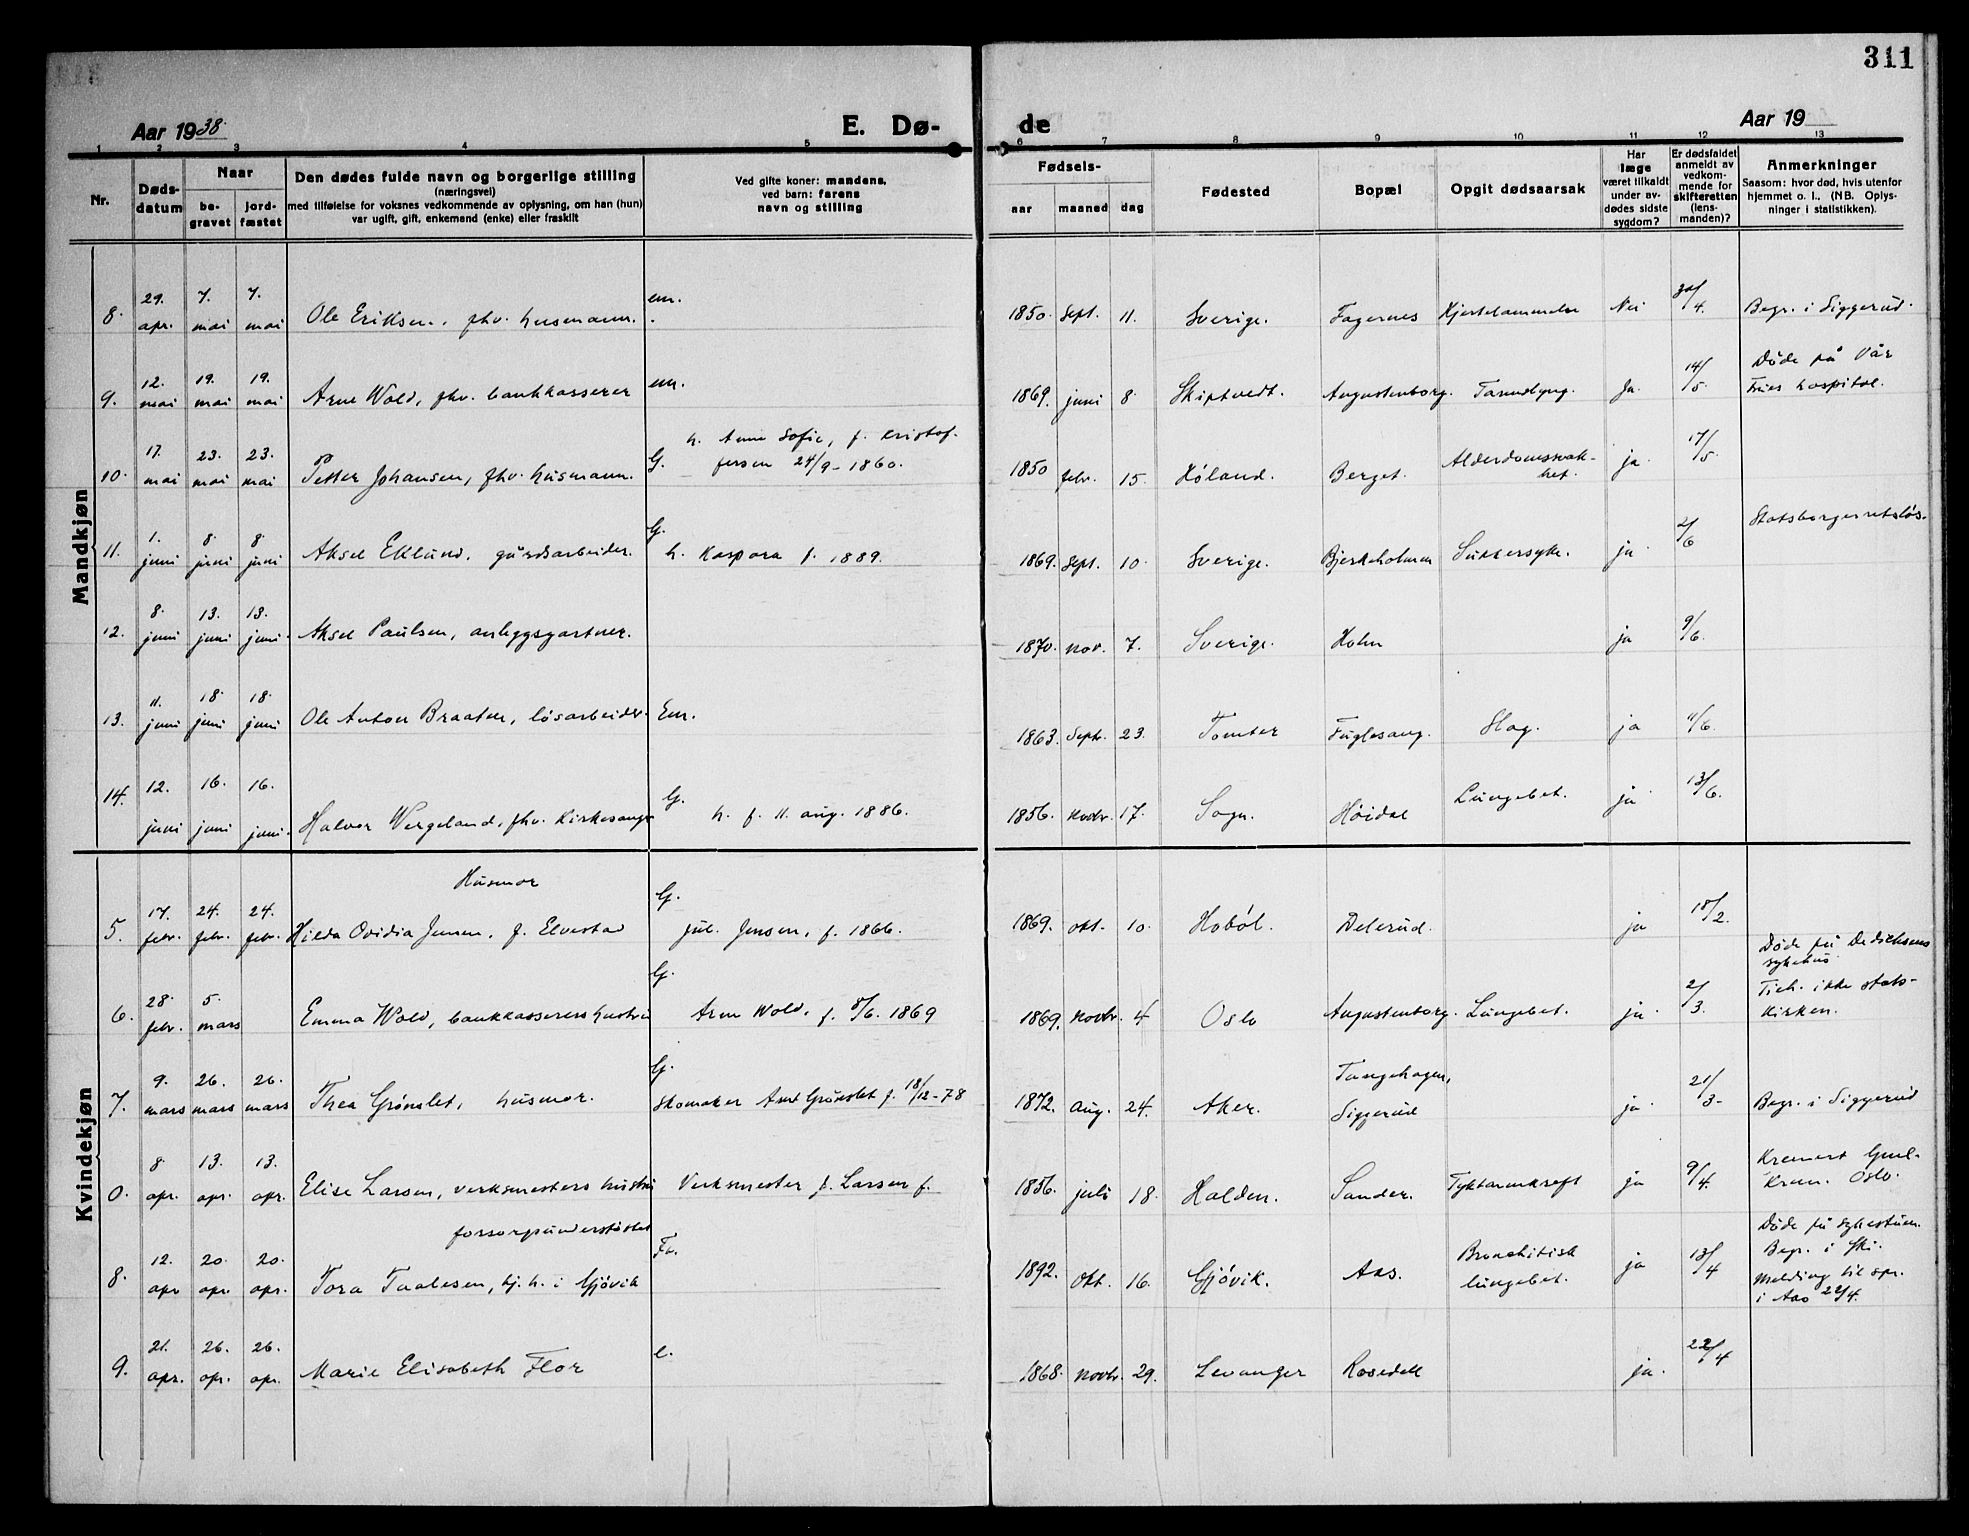 311
Aar 1938.
E. Dø-
de
Aar 19
1 2 3 4 5 6 7 8 9 10 11 12 13
Nr.
Døds-
datum
Naar
be-
gravet
jord-
fæstet
Den dødes fulde navn og borgerlige stilling
(næringsvei)
med tilføielse for voksnes vedkommende av oplysning, om han (hun)
var ugift, gift, enkemand (enke) eller fraskilt
Ved gifte koner: mandens,
ved barn: farens
navn og stilling
Fødsels-
aar maaned dag
Fødested
Bopæl
Opgit dødsaarsak
Har
læge
været tilkaldt
under av-
dødes sidste
sygdom?
Er dødsfaldet
anmeldt av
vedkom-
mende for
skifteretten
(lens-
manden)?
Anmerkninger
Saasom: hvor død, hvis utenfor
hjemmet o. l., (NB. Oplys-
ninger i statistikken).
Mandkjøn
8. 29. apr. 7. mai 7. mai Ole Eriksen, fhv. husmann. em. 1850. sept. 11. Sverige. Fagernes Hjertelammelse Nei 30/4. Begr. i Siggerud.
9. 12. mai 19. mai 19. mai Arne Wold, fhv. bankkasserer em. 1869. juni 8. Skiptvedt. Augustenborg. Ja. 14/5. Døde på Vår
Frues hospital.
10. 17. mai 23. mai 23. mai Petter Johansen, fhv. husmann. G. h. Anne Sofie, f. Kristof-
fersen 24/9-1860. 1850 febr. 15. Høland. Berget. Alderdomssvak-
het. ja. 17/5.
11. 1. juni 8. juni 8. juni Aksel Eklund, gårdsarbeider. G. h. Kaspara f. 1889. 1869. sept. 10. Sverige. Bjerkeholmen Sukkersyke. ja. 2/6 Statsborgerretsløs.
12. 8. juni 13. juni 13. juni. Aksel Paulsen, anleggsgartner. 1870. nov. 7. Sverige. Holm ja 9/6.
13. 11. juni 18. juni 18. juni Ole Anton Braaten, løsarbeider. Em. 1863. Septr. 23. Tomter Fuglesang. Slag. ja 11/6.
14. 12. juni 16. juni 16. juni. Halvor Wergeland, fhv. Kirkesanger G. h. f. 11. aug. 1886. 1856. Novbr. 17. Sogn. Høidal Lungebet. ja 13/6.
Kvindekjøn
5. 17. febr. 24. febr. 24. febr. Husmor
Hilda Ovidia Jensen, f. Elvestad G. Jul. Jensen, f. 1866. 1869. okt. 10. Hobøl. Delerud. ja 18/2.
6. 28. febr. 5. mars Emma Wold, bankkasserers hustru G. Arne Wold, f. 8/6. 1869 1869. Novbr. 4 Oslo Augustenborg. Lungebet. ja. 2/3. Døde på Dedichens
sykehus.
Tilh. ikke stats-
kirken.
7. 9. mars 26. mars 26. mars Thea Grønslet, husmor. G. Skomaker Amt Grønslet f. 18/12-78 1872. aug. 24. Aker. Tangehagen,
Siggerud ja. 21/3- Begr. i Siggerud
0. 8. apr. 13. apr. 13. apr. Elise Larsen, verksmesters hustru Verksmester f. Larsen f. 1856. juli 18. Halden. Sander. Tyktarmkreft ja 9/4. Kremert Gml.
Krem. Oslo.
8. 12. apr 20. apr. 20. apr. forsorgsunderstøttet
Tora Paalesen, hj. h. i Gjøvik Fr. 1892. Okt. 16. Gjøvik. Aas. Bronchitisk
lungebet. ja 13/4 Døde på sykestuen.
Begr. i Ski.
Melding til spr.
i Aas 22/4.
9. 21. apr. 26. apr. 26. apr. Marie Elisabeth Flor e. 1868. novbr. 29. Levanger Rosedell ja. 22/4